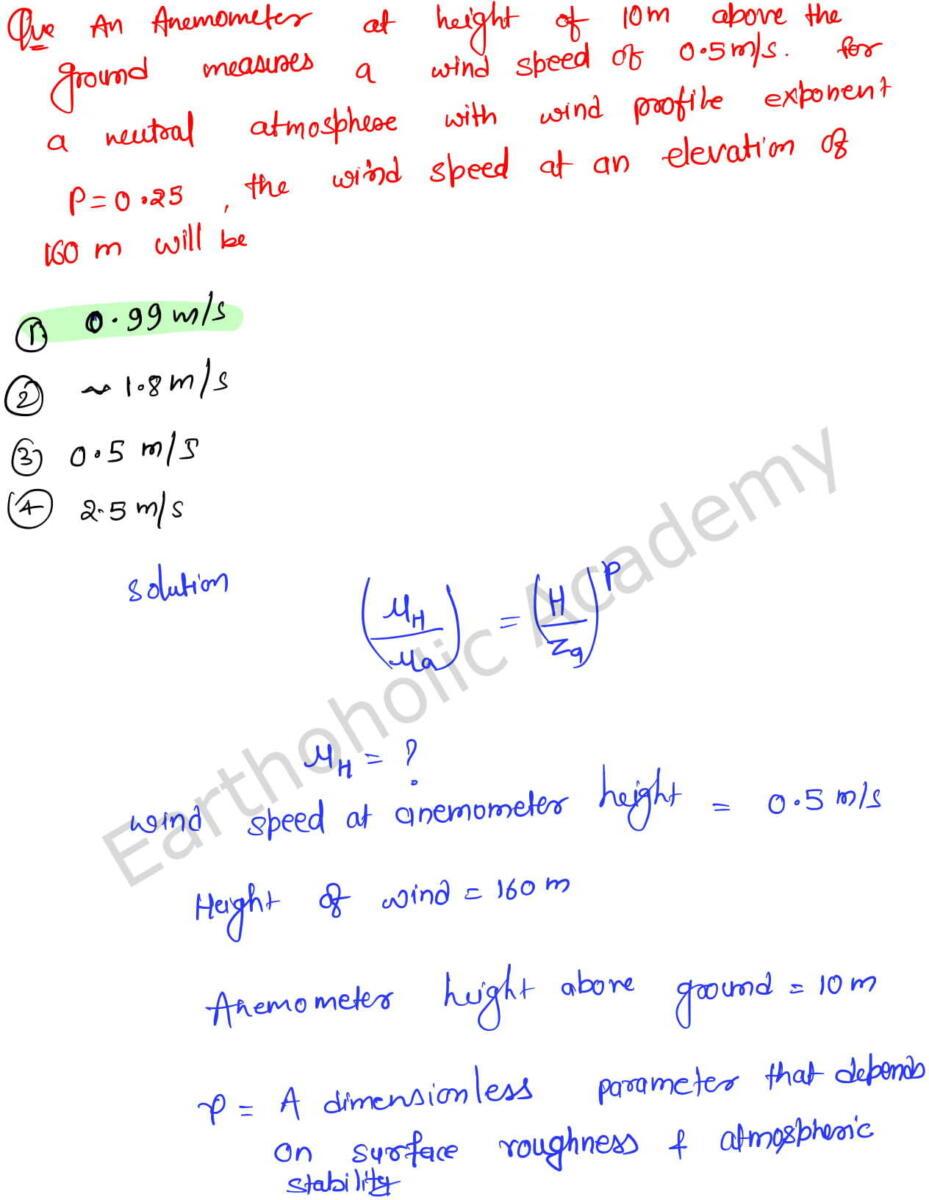 Que An Anemometer at height of 10m above the
ground measures a wind speed of 0.5m/s. for
a neutral atmosphere with wind profile exponent
P=0.25, the wind speed at an elevation of
160 m will be
① 0.99 m/s
② ~ 1.8 m/s
③ 0.5 m/s
④ 2.5 m/s
Solution
(μH/μa) = (H/Za)^P
μH = ?
wind speed at anemometer height = 0.5 m/s
Height of wind = 160 m
Anemometer height above ground = 10 m
P = A dimensionless parameter that depends
on surface roughness & atmospheric
stability
Earthoholic Academy